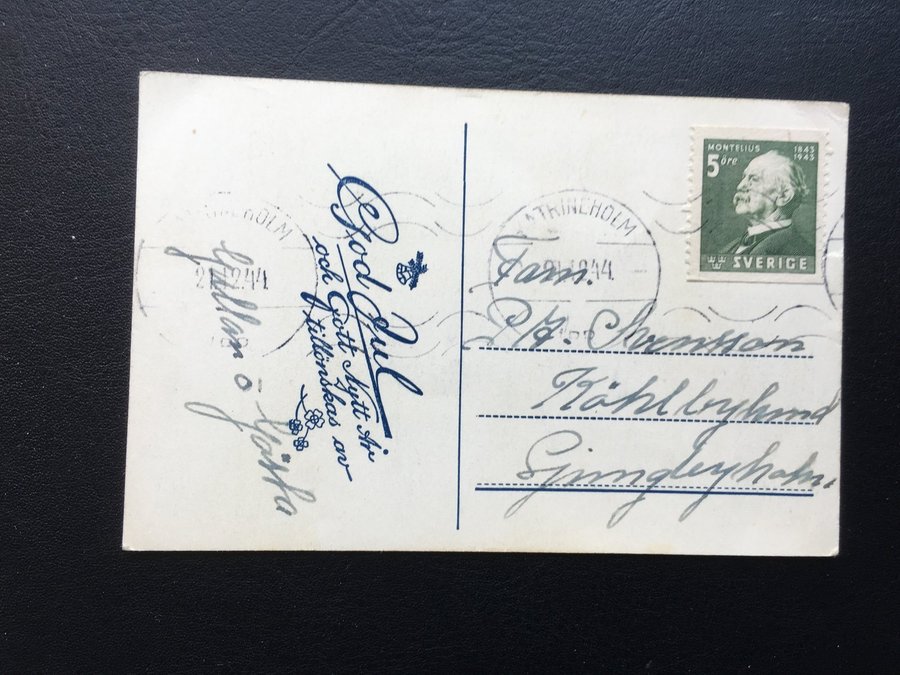 God Jul
och Gott Nytt År
tillönskas av
Gullan o Gösta
KATRINEHOLM
21.12.44
KATRINEHOLM
21.12.44
MONTELIUS 1843
1943
5 öre
SVERIGE
Fam.
P. A. Svensson
Ljungbyholm